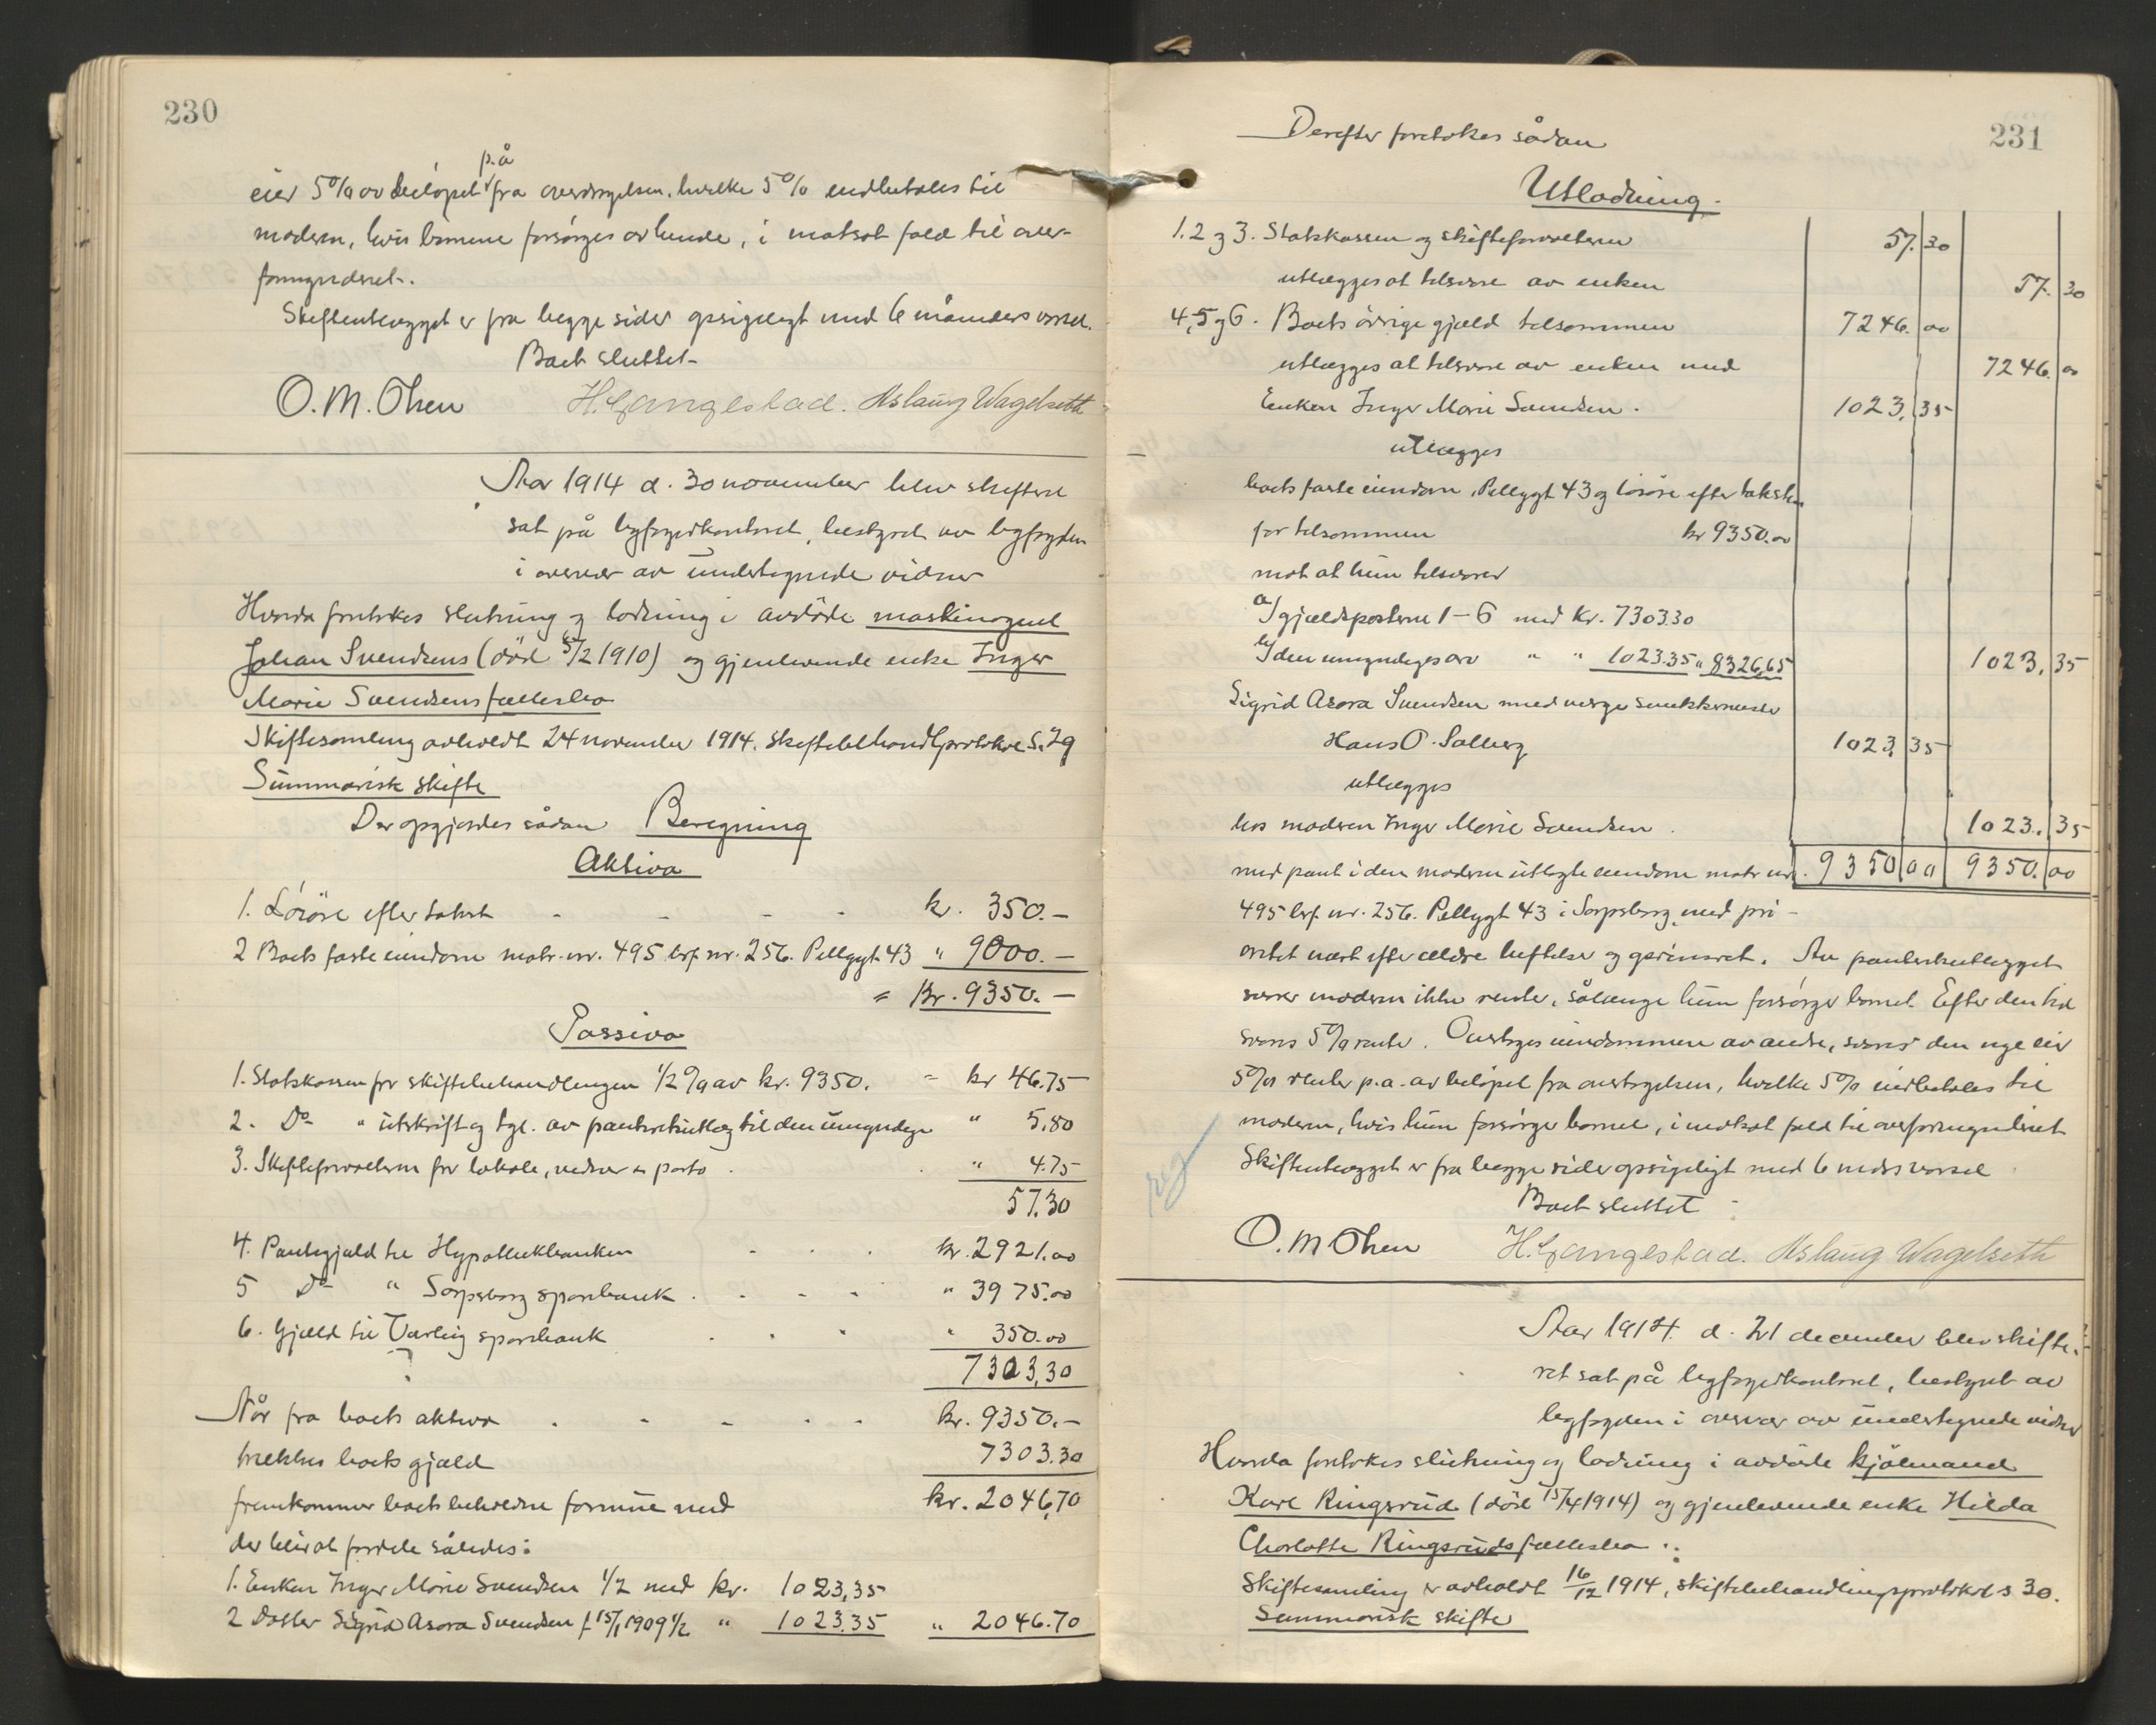 230
p.å
eier 5% av beløpet fra overdragelsen, hvilke 5% indbetales til
moderen, hvis børnene forsørges av hende, i motsat fald til over-
formynderiet.
Skifteutlægget er fra begge sider opsigeligt med 6 måneders varsel.
Boet sluttet
O. M. Olsen H. Gangestad. Aslaug Wagelseth
Aar 1914 d. 30 november blev skifteret
sat på byfogedkontoret, bestyret av byfogden
i overvær av undertegnede vidner
Hvorda foretokes slutning og lodning i avdøde maskinogned
Johan Svendsens (død 5/2 1910) og gjenlevende enke Inger
Marie Svendsens fællesbo
Skiftesamling avholdt 24 november 1914. Skiftebehandl.protokol S. 29
Summarisk skifte
Der opgjordes sådan Beregning
Aktiva
1. Løsøre efter takst - - - - kr. 350.-
2 Boets faste eiendom matr. nr. 495 brf. nr. 256. Pellygt. 43 " 9000.-
= Kr. 9350.-
Passiva
1. Statskassen for skiftebehandlingen 1/2 % av kr. 9350. = kr 46.75
2. Do " utskrift og tgl. av panteretsutlæg til den umyndige " 5.80
3. Skifteforvalteren for lokale, vidner & porto . . " 4.75
57.30
4. Pantegjæld til Hypothekbanken - . . kr. 2921.00
5 Do " Sarpsborg sparebank . - - - " 3975.00
6. Gjæld til Varteig sparebank . . . " 350.00
7303,30
Når fra boets aktiva . - - - - kr. 9350.-
trækkes boets gjæld 7303.30
fremkommer boets beholdne formue med kr. 2046,70
der blir at fordele således:
1. Enken Inger Marie Svendsen 1/2 med kr. 1023,35
2 Datter Sigrid Asora Svendsen f. 15/1 1909 1/2 " 1023.35 " 2046.70
231
Derefter foretokes sådan
Utlodning.
1. 2 og 3. Statskassen og skifteforvalteren 57. 30
utlægges at tilsvare av enken 57. 30
4, 5 og 6. Boets øvrige gjæld tilsammen 7246. 00
utlægges at tilsvare av enken med 7246. 00
Enken Inger Marie Svendsen. 1023, 35
utlægges
boets faste eiendom, Pellygt 43 og løsøre efter taksten
for tilsammen kr 9350.00
mot at hun tilsvarer
a) gjældsposterne 1-6 med kr. 7303.30
b) den umyndiges arv " " 1023.35 " 8326,65 1023, 35
Sigrid Asora Svendsen med verge snekkermester
Hans O. Solberg 1023, 35
utlægges
hos moderen Inger Marie Svendsen . 1023. 35
med pant i den moderen utlagte eiendom matr. nr. 9350 00 9350. 00
495 brf. nr. 256. Pellygt 43 i Sarpsborg med pri-
oritet næst efter ældre heftelser og grundret. Av panteretsutlægget
svarer moderen ikke renter, sålænge hun forsørger barnet. Efter den tid
svares 5% rente. Overtages eiendommen av andre, svarer den nye eier
5% renter p.a. av beløpet fra overtagelsen, hvilke 5% indbetales til
moderen, hvis hun forsørger barnet, i motsat fald til overformynderiet
Skifteutlægget er fra begge sider opsigeligt med 6 mdrs varsel
Boet sluttet
O. M Olsen H. Gangestad. Aslaug Wagelseth
Aar 1914 d. 21 december blev skifte-
ret sat på byfogedkontoret, bestyret av
byfogden i overvær av undertegnede vidner
Hvorda foretokes slutning og lodning i avdøde kjølmand
Karl Ringsrud (død 15/4 1914) og gjenlevende enke Hilda
Charlotte Ringsruds fællesbo.
Skiftesamling er avholdt 16/12 1914, skiftebehandlingsprotokol s 30.
Summarisk skifte